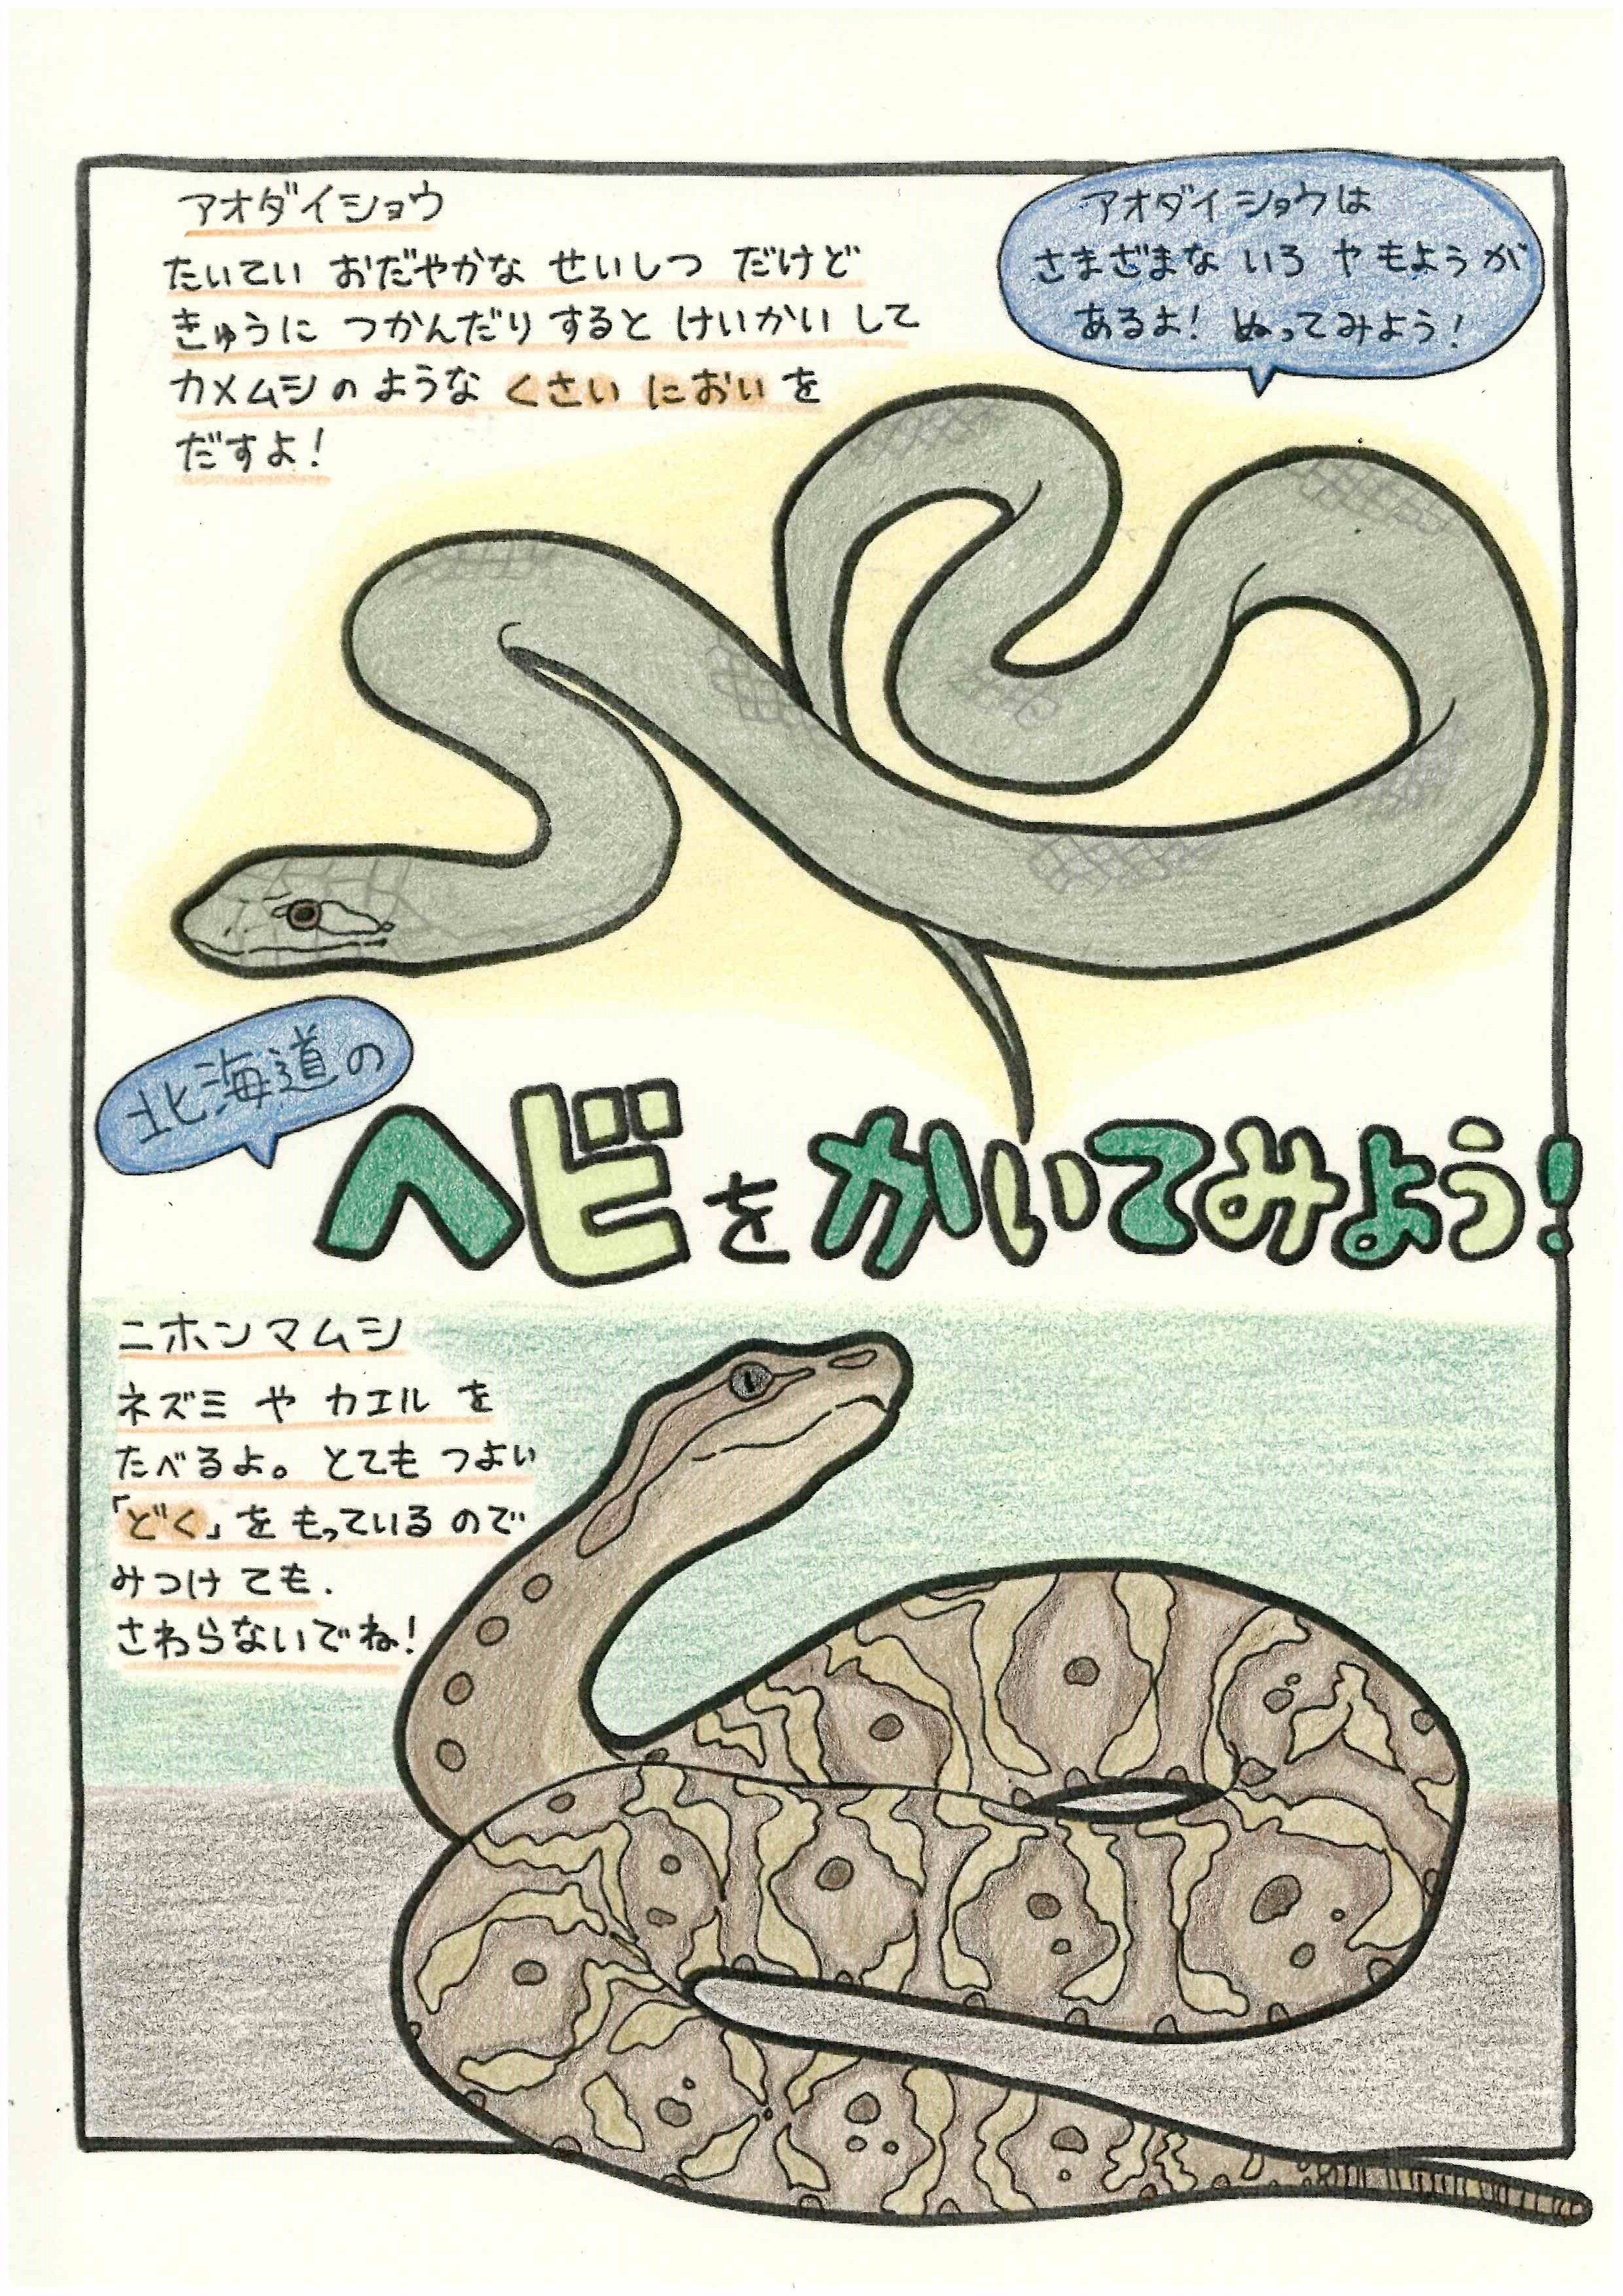 アオダイショウ
たいてい おだやかな せいしつ だけど
きゅうに つかんだり すると けいかい して
カメムシの ような くさい においを
だすよ!
アオダイショウは
さまざまな いろ や もようが
あるよ! ぬってみよう!
北海道の
ヘビを かいてみよう!
ニホンマムシ
ネズミ や カエル を
たべるよ。とても つよい
「どく」を もっている ので
みつけ ても.
さわらないでね!